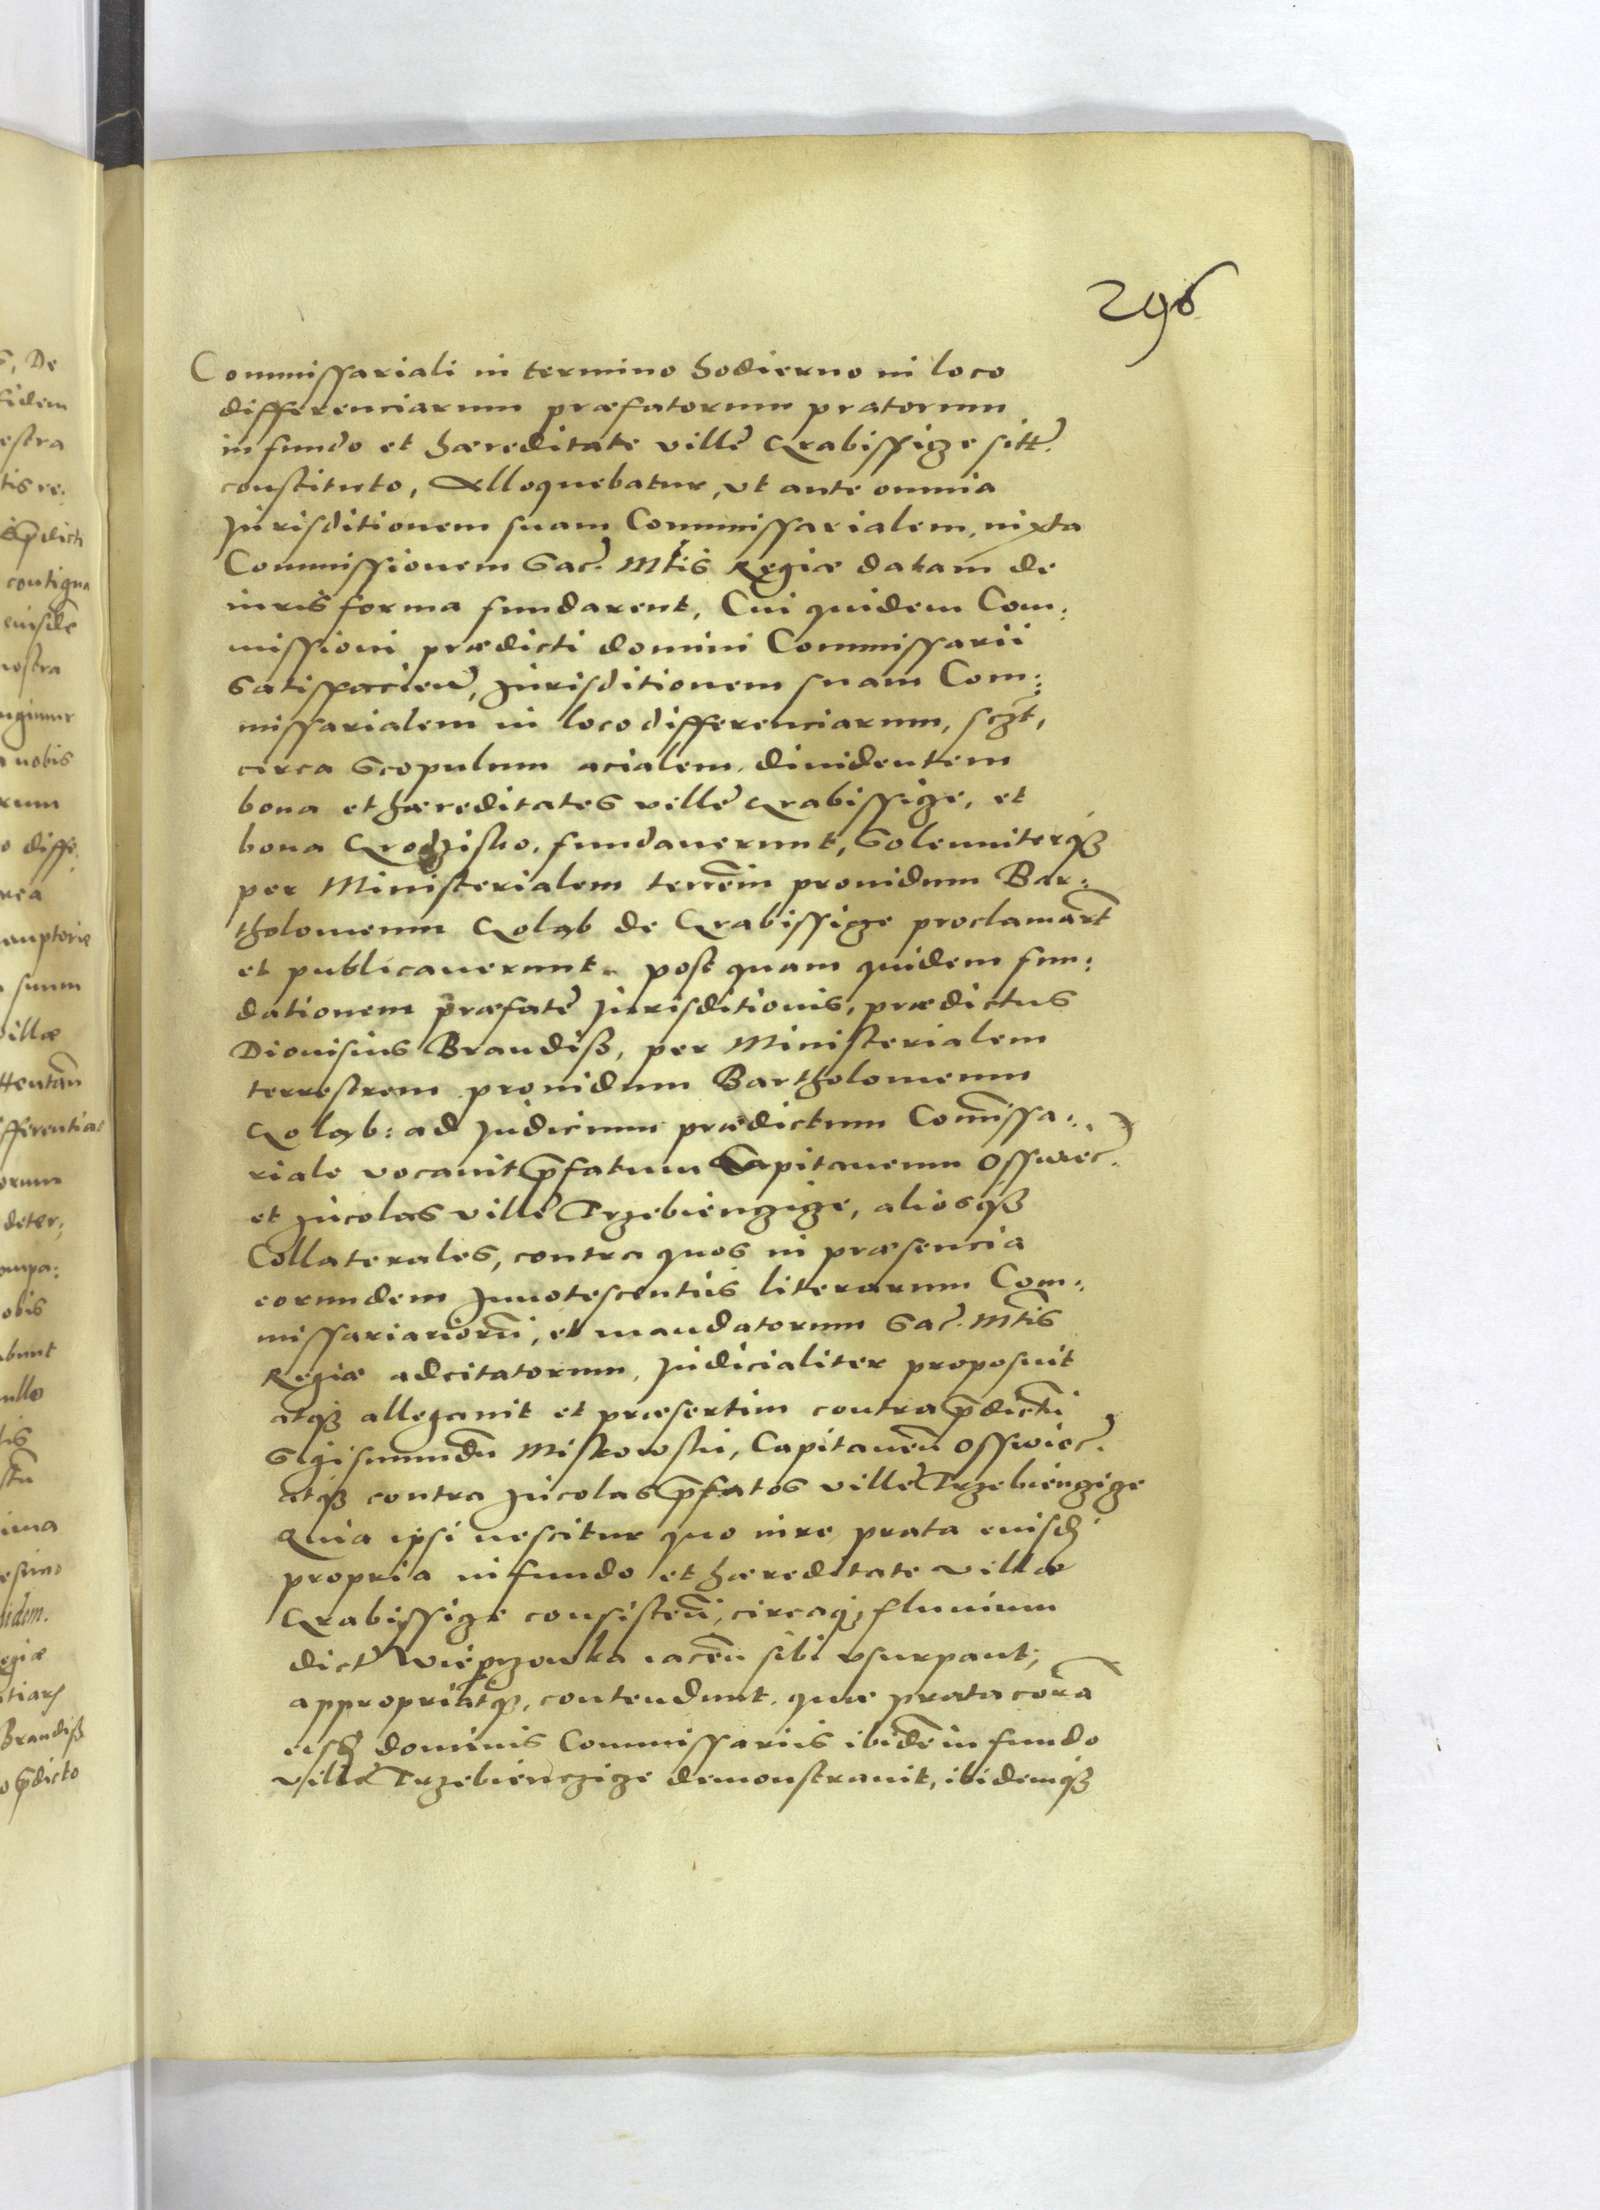 296
Commissariali in termino hodierno in loco
differenciarum præfatorum pratorum
in fundo et hæreditate villę Grabissicze sitt.
constituto, Alloquebatur, vt ante omnia
Jurisditionem suam Commissarialem, iuxta
Commissionem Sac. Mtis Regiæ datam de
iuris forma fundarent, Cui quidem Com:
missioni prædicti domini Commissarii
Satisfacien, Jurisditionem suam Com:
missarialem in loco differenciarum, sczt,
circa Scopulum acialem diuidentem
bona et hæreditates villę Grabissicze, et
bona Grodzisko, fundauerunt, Solenniterqz
per Ministerialem terrem prouidum Bar:
tholomeum Goląb de Grabissicze proclamart
et publicauerunt. post quam quidem fun:
dationem præfatę Jurisditionis, prædictus
Dionisius Brandisz, per Ministerialem
terrestrem prouidum Bartholomeum
Goląb: ad Judicium prædictum Comissa:
riale vocauit pfatum Capitaneum Osswiec.
et Incolas villę Trzebienczicze, aliosqz
Collaterales, contra quos in præsencia
eorundem Innotescentiis literarum Com:
missariariorū, et mandatorum Sac. Mtis
Regiæ adcitatorum, Judicialiter proposuit
atqz allegauit et præsertim contra pdictū
Sigismundū Miskowski, Capitaneū Osswiec.
atqz contra Incolas pfatos villę Trzebienczicze
Quia ipsi nescitur quo iure prata eiusd
propria in fundo et hæreditate villæ
Grabissicze consisten, circaqz fluuium
dict Wieprzowka iacen sibi vsurpant,
appropriatqz, contendunt. quæ prata corā
eisd dominis Commissariis ibidē in fundo
villę Trzebienczicze demonstrauit, ibidemqz